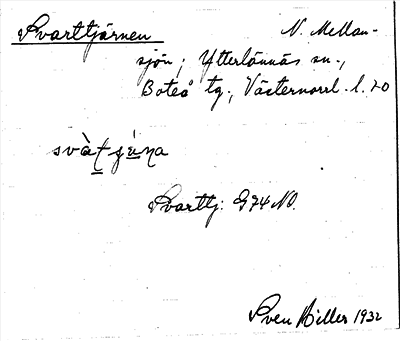 Svarttjärnen N. Mellan-
sjön; Ytterlännäs sn.,
Boteå tg., Västernorrl. l.
Svarttj. G74 NO.
Sven Biller 1932